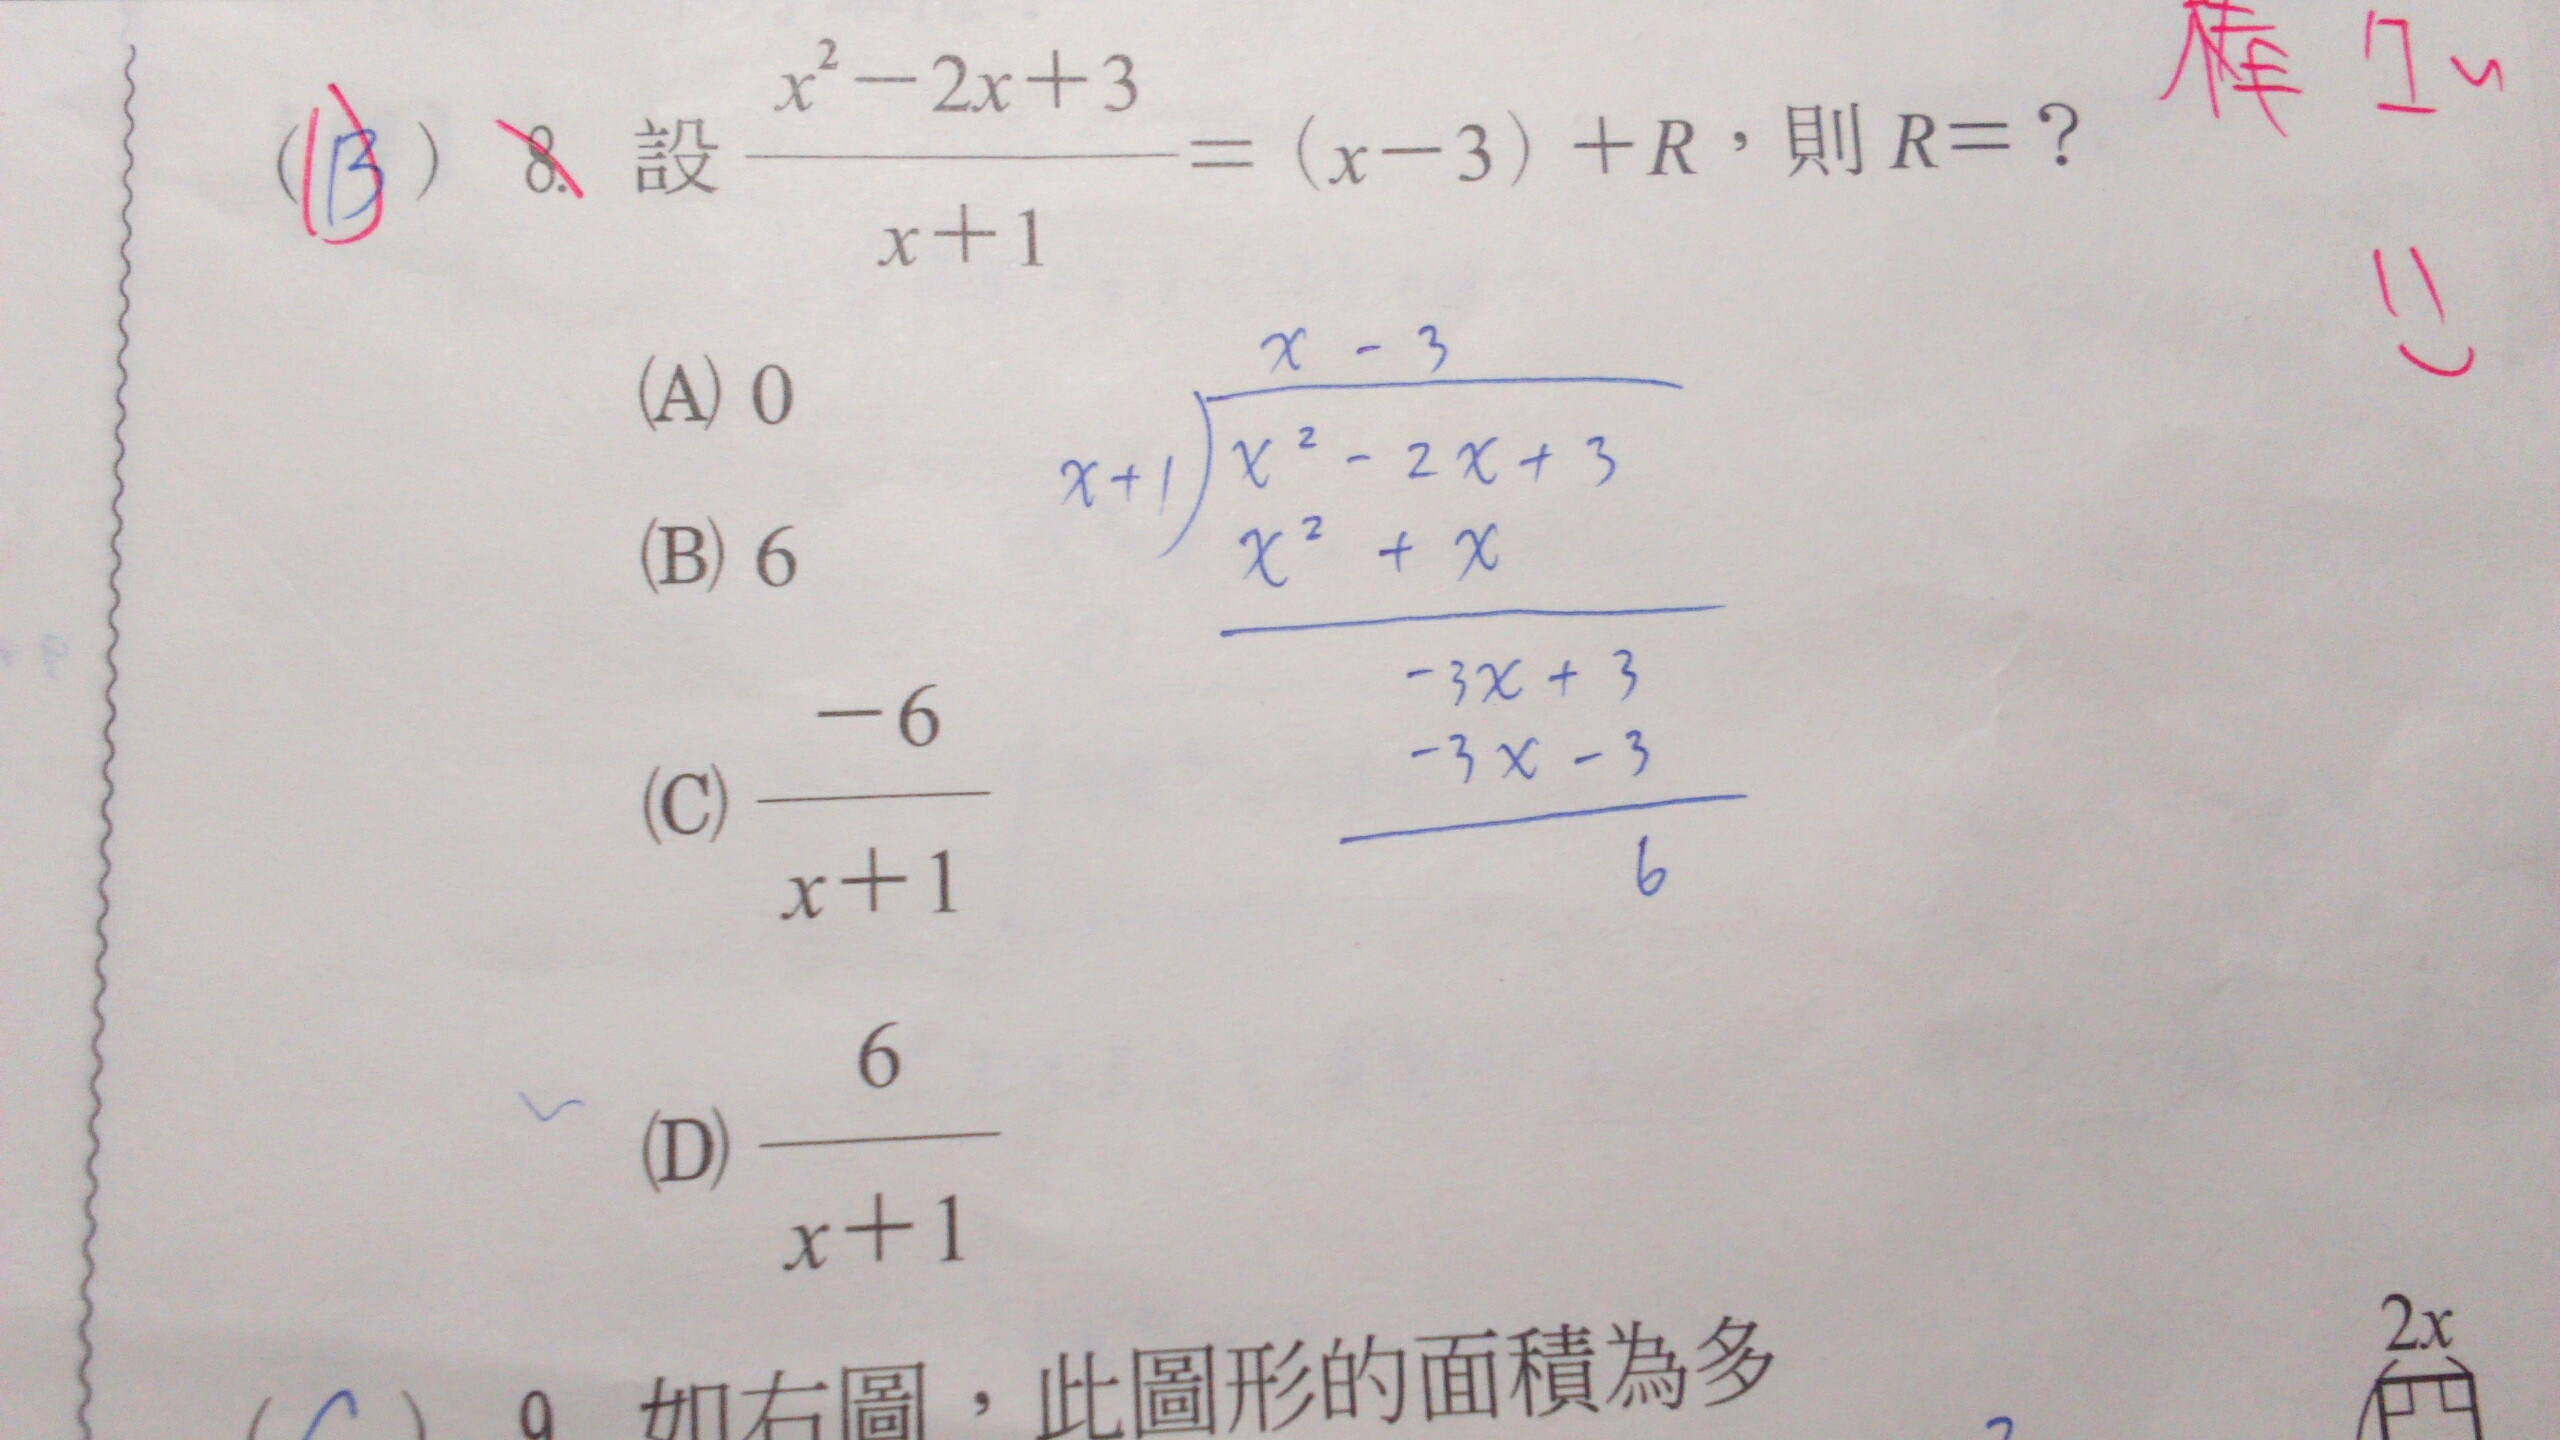 棒ㄋㄟ
(B) 8. 設 x²－2x＋3 / x＋1 ＝(x－3)＋R，則R＝？
(A) 0
(B) 6
(C) －6 / x＋1
(D) 6 / x＋1
x - 3
x+1 ) x² - 2x + 3
x² + x
-3x + 3
-3x - 3
6
( C ) 9. 如右圖，此圖形的面積為多
2x